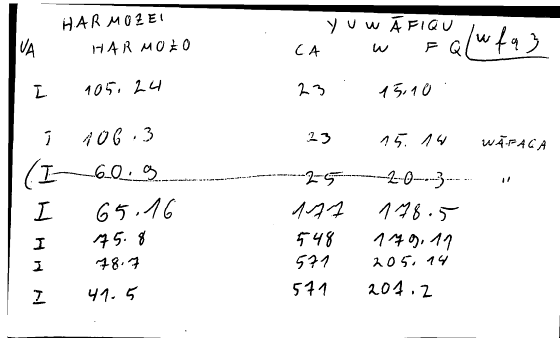 HARMOZEI YUWĀFIQU
UA HARMOZO CA W F Q (wfq 3
I 105.24 23 15.10
I 106.3 23 15.14 WĀFAQA
(I 60.9 25 20.3 "
I 65.16 177 178.5
I 75.8 548 179.11
I 78.7 571 205.14
I 41.5 571 207.2